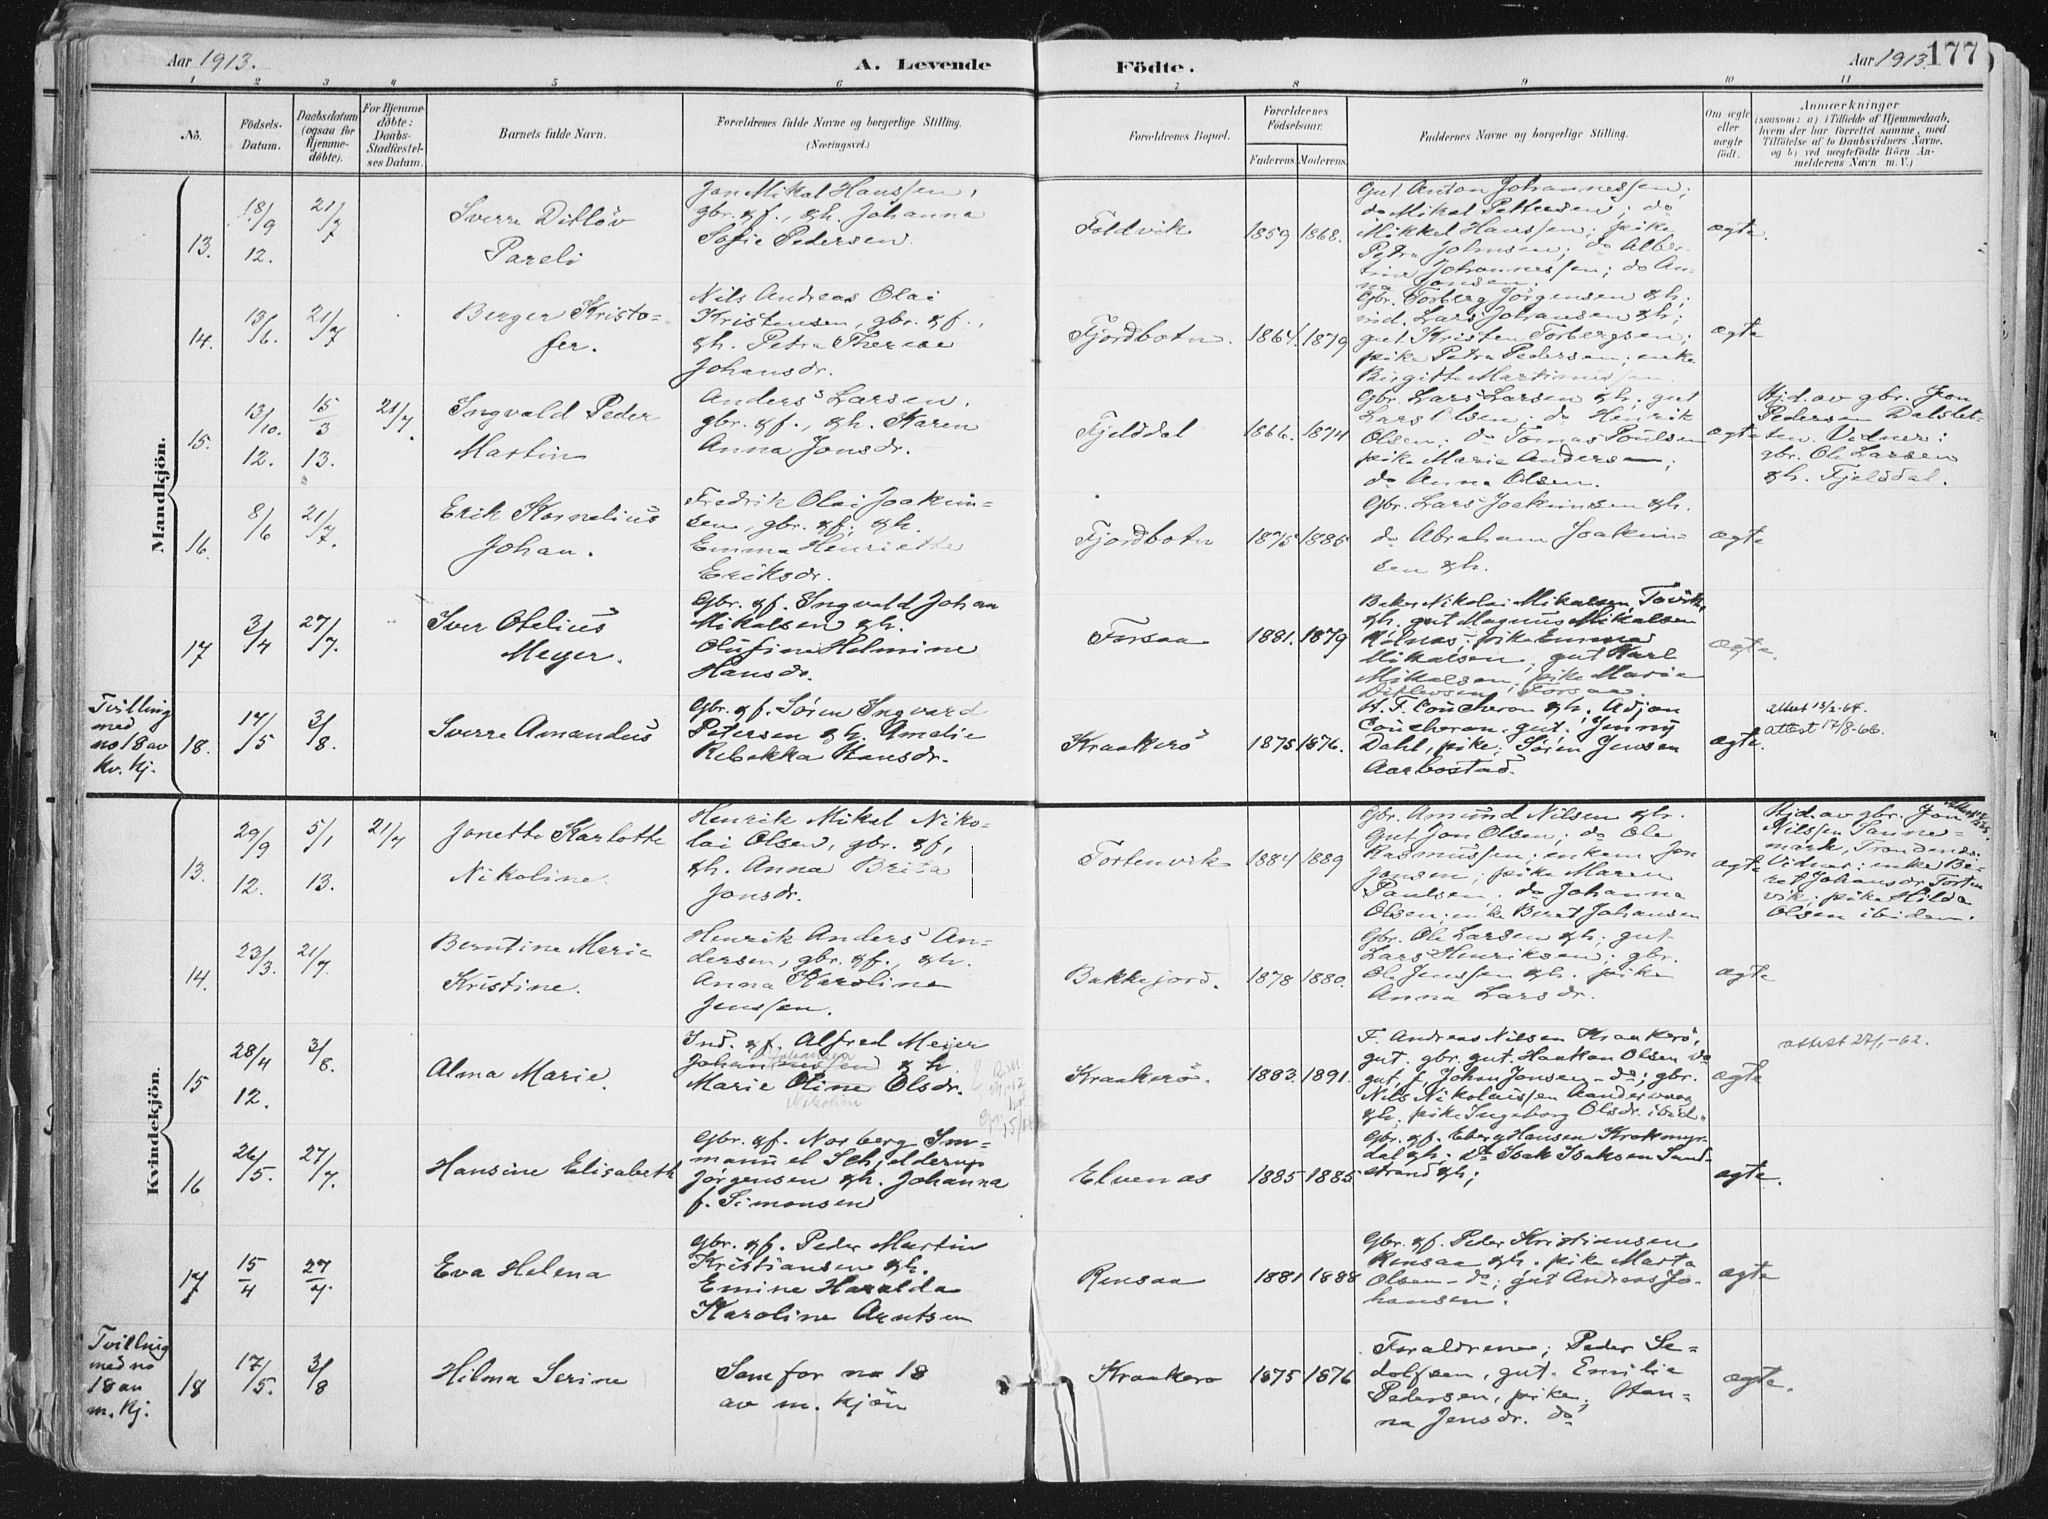 Aar 1913.
A. Levende
Födte.
Aar 1913.
177
1 2 3 4 5 6 7 8 9 10 11
No.
Födsels-
Datum.
Daabsdatum
(ogsaa for
Hjemme-
döbte).
For Hjemme-
döbte:
Daabs-
Stadfæstel-
ses Datum.
Barnets fulde Navn.
Forældrenes fulde Navne og borgerlige Stilling.
(Næringsvei.)
Forældrenes Bopæl.
Forældrenes
Födselsaar.
Faderens.
Moderens.
Faddernes Navne og borgerlige Stilling.
Om ægte
eller
uægte
født.
Anmærkninger
(saasom: a) i Tilfælde af Hjemmedaab,
hvem der har forrettet samme, med
Tilföielse af to Daabsvidners Navne,
og b) ved uægtefödte Börn An-
melderens Navn m. V.)
Mandkjön.
13.
18/9
12.
21/7
Sverre Ditlöv
Pareli
Jon Mikal Hanssen,
gbr. & f., & h. Johanna
Sofie Pedersen.
Foldvik
1859
1868.
Gut Anton Johannessen;
do Mikal Pettersen; do
Mikkel Hanssen; pike
Petra Johnsen; do Alber-
tine Johannessen; do An-
na Jonsen.
ægte.
14.
13/6.
21/7
Berger Kristo-
fer.
Nils Andreas Olai
Kristensen, gbr. & f.,
& h. Petra Therese
Johansdr.
Fjordbotn.
1864.
1879
Gbr. Torberg Jörgensen & h;
ind. Lars Johansen & h;
gut Kristen Torbergsen;
pike Petra Pedersen; enke
Birgitte Martinussen.
ægte
15.
13/10.
12.
15/3
13.
21/7.
Ingvald Peder
Martin
Anders Larsen,
gbr. & f., & h. Karen
Anna Jonsdr.
Fjelddal
1866.
1874
Gbr. Lars Larsen & h; gut
Lars Olsen; do Henrik
Olsen; do Tomas Poulsen
pike Marie Andersen;
do Anna Olsen.
ægte
Hjd. av gbr. Jon
Pedersen Dalslet-
ten. Vidner:
gbr. Ole Larsen
& h. Fjelddal.
16.
8/6
21/7.
Erik Kornelius
Johan.
Fredrik Olai Joakim-
sen, gbr. & f; & h.
Emma Henriette
Eriksdr.
Fjordbotn
1875
1885
Gbr. Lars Joakimsen & h.
do Abraham Joakim-
sen & h.
ægte
17
3/4
27/7.
Iver Otelius
Meyer.
Gbr. & f. Ingvald Johan
Mikalsen & h.
Olufine Helmine
Hansdr.
Forsaa
1881.
1879
Baker Nikolai Mikalsen, Tovik,
& h. gut Magnus Mikalsen
pike Emma
Mikalsen, gut Karl
Mikalsen, pike Marie
Ditlevsen, Forsaa.
ægte.
Tvilling
med
no 18 av
kv. kj.
18.
17/5
3/8.
Sverre Amandus
Gbr. & f. Sören Ingvard
Petersen & h. Amalie
Rebekka Hansdr.
Kraakerö
1875
1876.
H. F. Coucheron & h. Adjon
Coucheron, gut, Jenny
Dahl, pike; Sören Jensen
Aarbostad.
ægte.
attest 13/2-64.
attest 17/8-66.
Kvindekjön.
13.
29/9
12.
5/1
13.
21/7
Janette Karlotte
Nikoline.
Henrik Mikal Niko-
lai Olsen, gbr. & f,
& h. Anna Brita
Jonsdr.
Tortenvik
1884
1889
Gbr. Amund Nilsen & h.
Gut Jon Olsen; do Ole
Rasmussen; enkem Jon
Jonsen; pike Maren
Paulsen; do Johanna
Olsen; enke Beret Johansen
ægte
Hjd. av gbr. Jon
Nilssen Sanne-
mark, Trondenes.
Vidner: enke Be-
ret Johansdr. Torten
vik; pike Hilda
Olsen ibidem.
14.
23/3.
21/7.
Berntine Marie
Kristine.
Henrik Anders An-
dersen, gbr. & f., & h.
Anna Karoline
Jenssen.
Bakkejord.
1878
1880.
Gbr. Ole Larsen & h; gut
Lars Henriksen; gbr.
Ole Jenssen & h. pike
Anna Larsdr.
ægte
15
28/4
12.
3/8.
Alma Marie.
Ind. & f. Alfred Meyer
Johannessen & h.
Marie Oline Olsdr.
Nikoline
Kraakerö.
1883.
1891.
F. Andreas Nilsen Kraakerö,
gut, gbr. gut. Haakon Olsen do
gut, f. Johan Jonsen do; gbr.
Nils Nikolaissen Aandervaag
& h; pike Ingeborg Olsdr. ibid.
ægte
attest 27/1-62.
16
26/5.
27/7.
Hansine Elisabeth
Gbr. & f. Norberg Im-
manuel Schjelderup
Jørgensen & h. Johanna
f. Simonsen
Elvenes
1885
1885
Gbr. & f. Eberg Hansen Krokmyr-
dal & h; do Isak Isaksen Sand-
strand & h;
ægte.
17
15/4
27/7.
Eva Helena
Gbr. & f. Peder Martin
Kristiansen & h.
Emine Haralda
Karoline Arntsen
Rensaa
1881
1888
Gbr. & f. Peder Kristiansen
Rensaa & h. pike Marta
Olsen - do; gut Andreas Jo-
hansen.
ægte
Tvilling
med no
18 av
m. kj.
18
17/5.
3/8
Hilma Serine
Som for no 18
av m. kjön
Kraakerö
1875
1876
Foreldrene; Peder Se-
dolfsen, gut. Emilie
Pedersen, pike; Han-
na Jensdr. do
ægte.